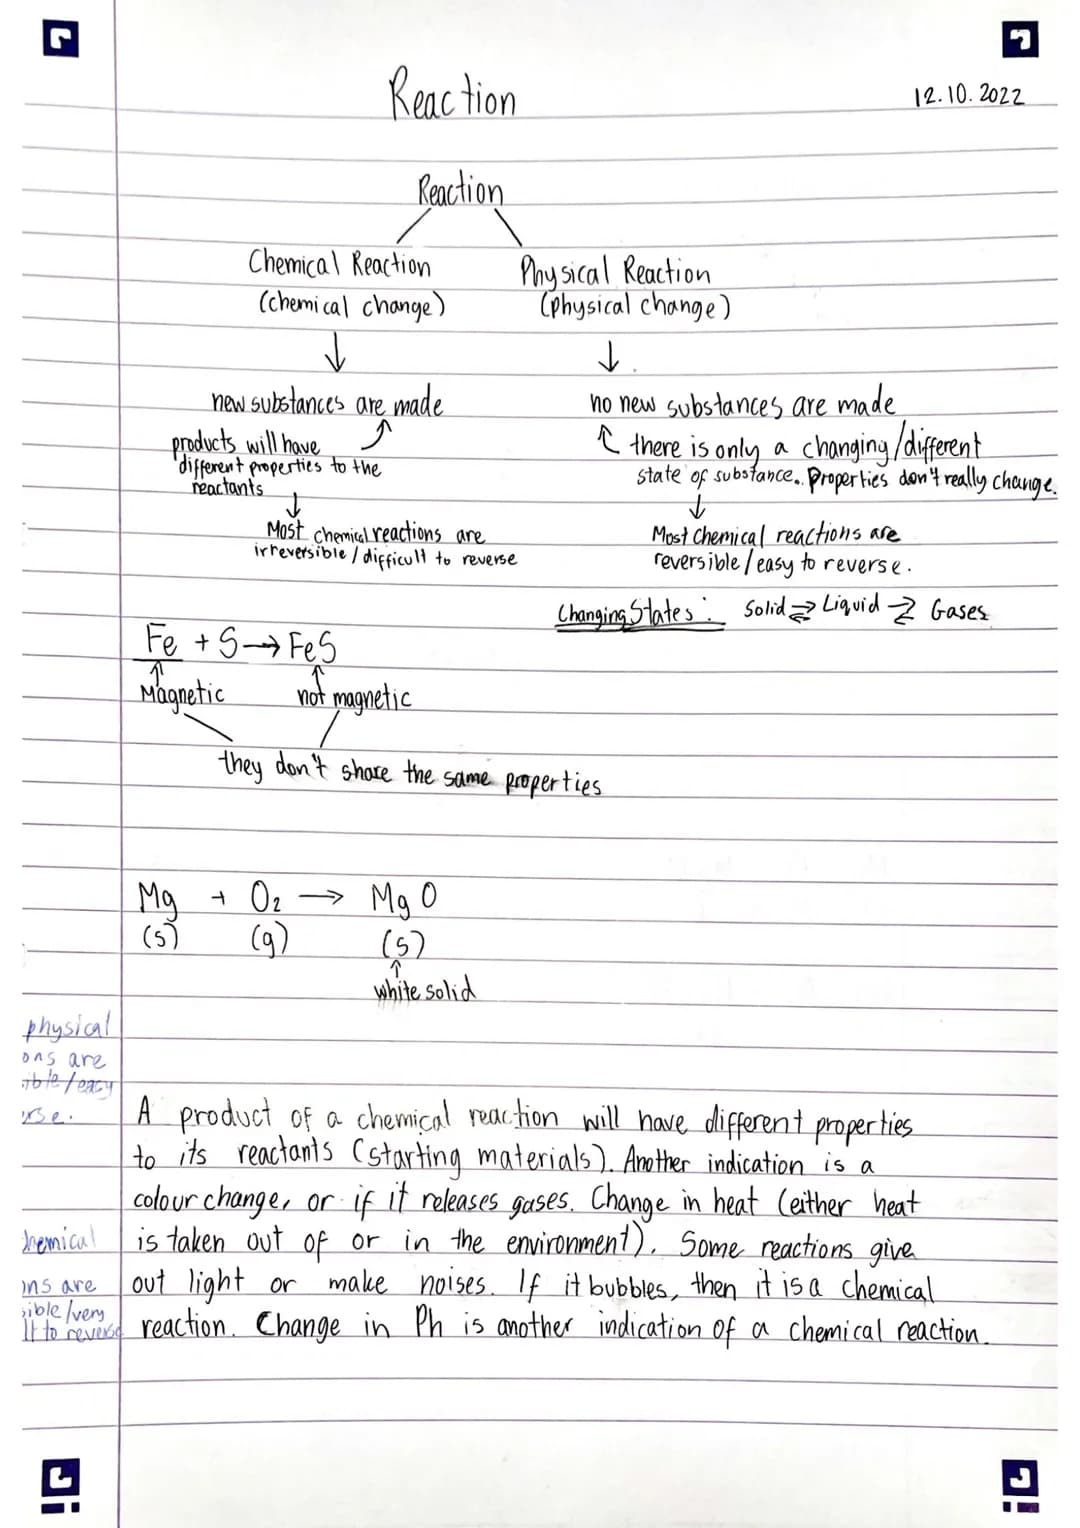 Reaction
12.10.2022
Reaction
Chemical Reaction
(chemical change)
Physical Reaction
(physical change)
new substances are made
products will have
different properties to the
reactants
Most chemical reactions are
irreversible / difficult to reverse
no new substances are made
there is only a changing/different
state of substance. Properties don't really change.
Most Chemical reactions are
reversible / easy to reverse.
Changing States: Solid ⇌ Liquid ⇌ Gases
Fe + S → FeS
Magnetic
not magnetic
they don't share the same properties
Mg + O₂ → MgO
(s) (g) (s)
white solid
physical
ons are
ible/easy
rse.
A product of a chemical reaction will have different properties
to its reactants (starting materials). Another indication is a
colour change, or if it releases gases. Change in heat (either heat
is taken out of or in the environment). Some reactions give
out light or make noises. If it bubbles, then it is a chemical
reaction. Change in Ph is another indication of a chemical reaction.
hemical
ons are
ible/very
lt to reverse